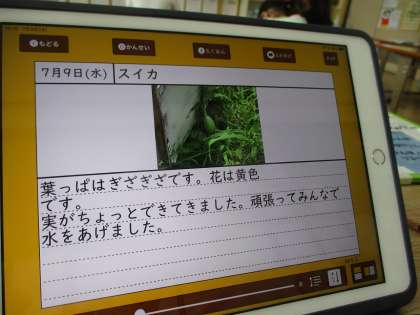 もどる
かんせい
7月9日(水) スイカ
葉っぱはぎざぎざです。花は黄色
です。
実がちょっとできてきました。頑張ってみんなで
水をあげました。